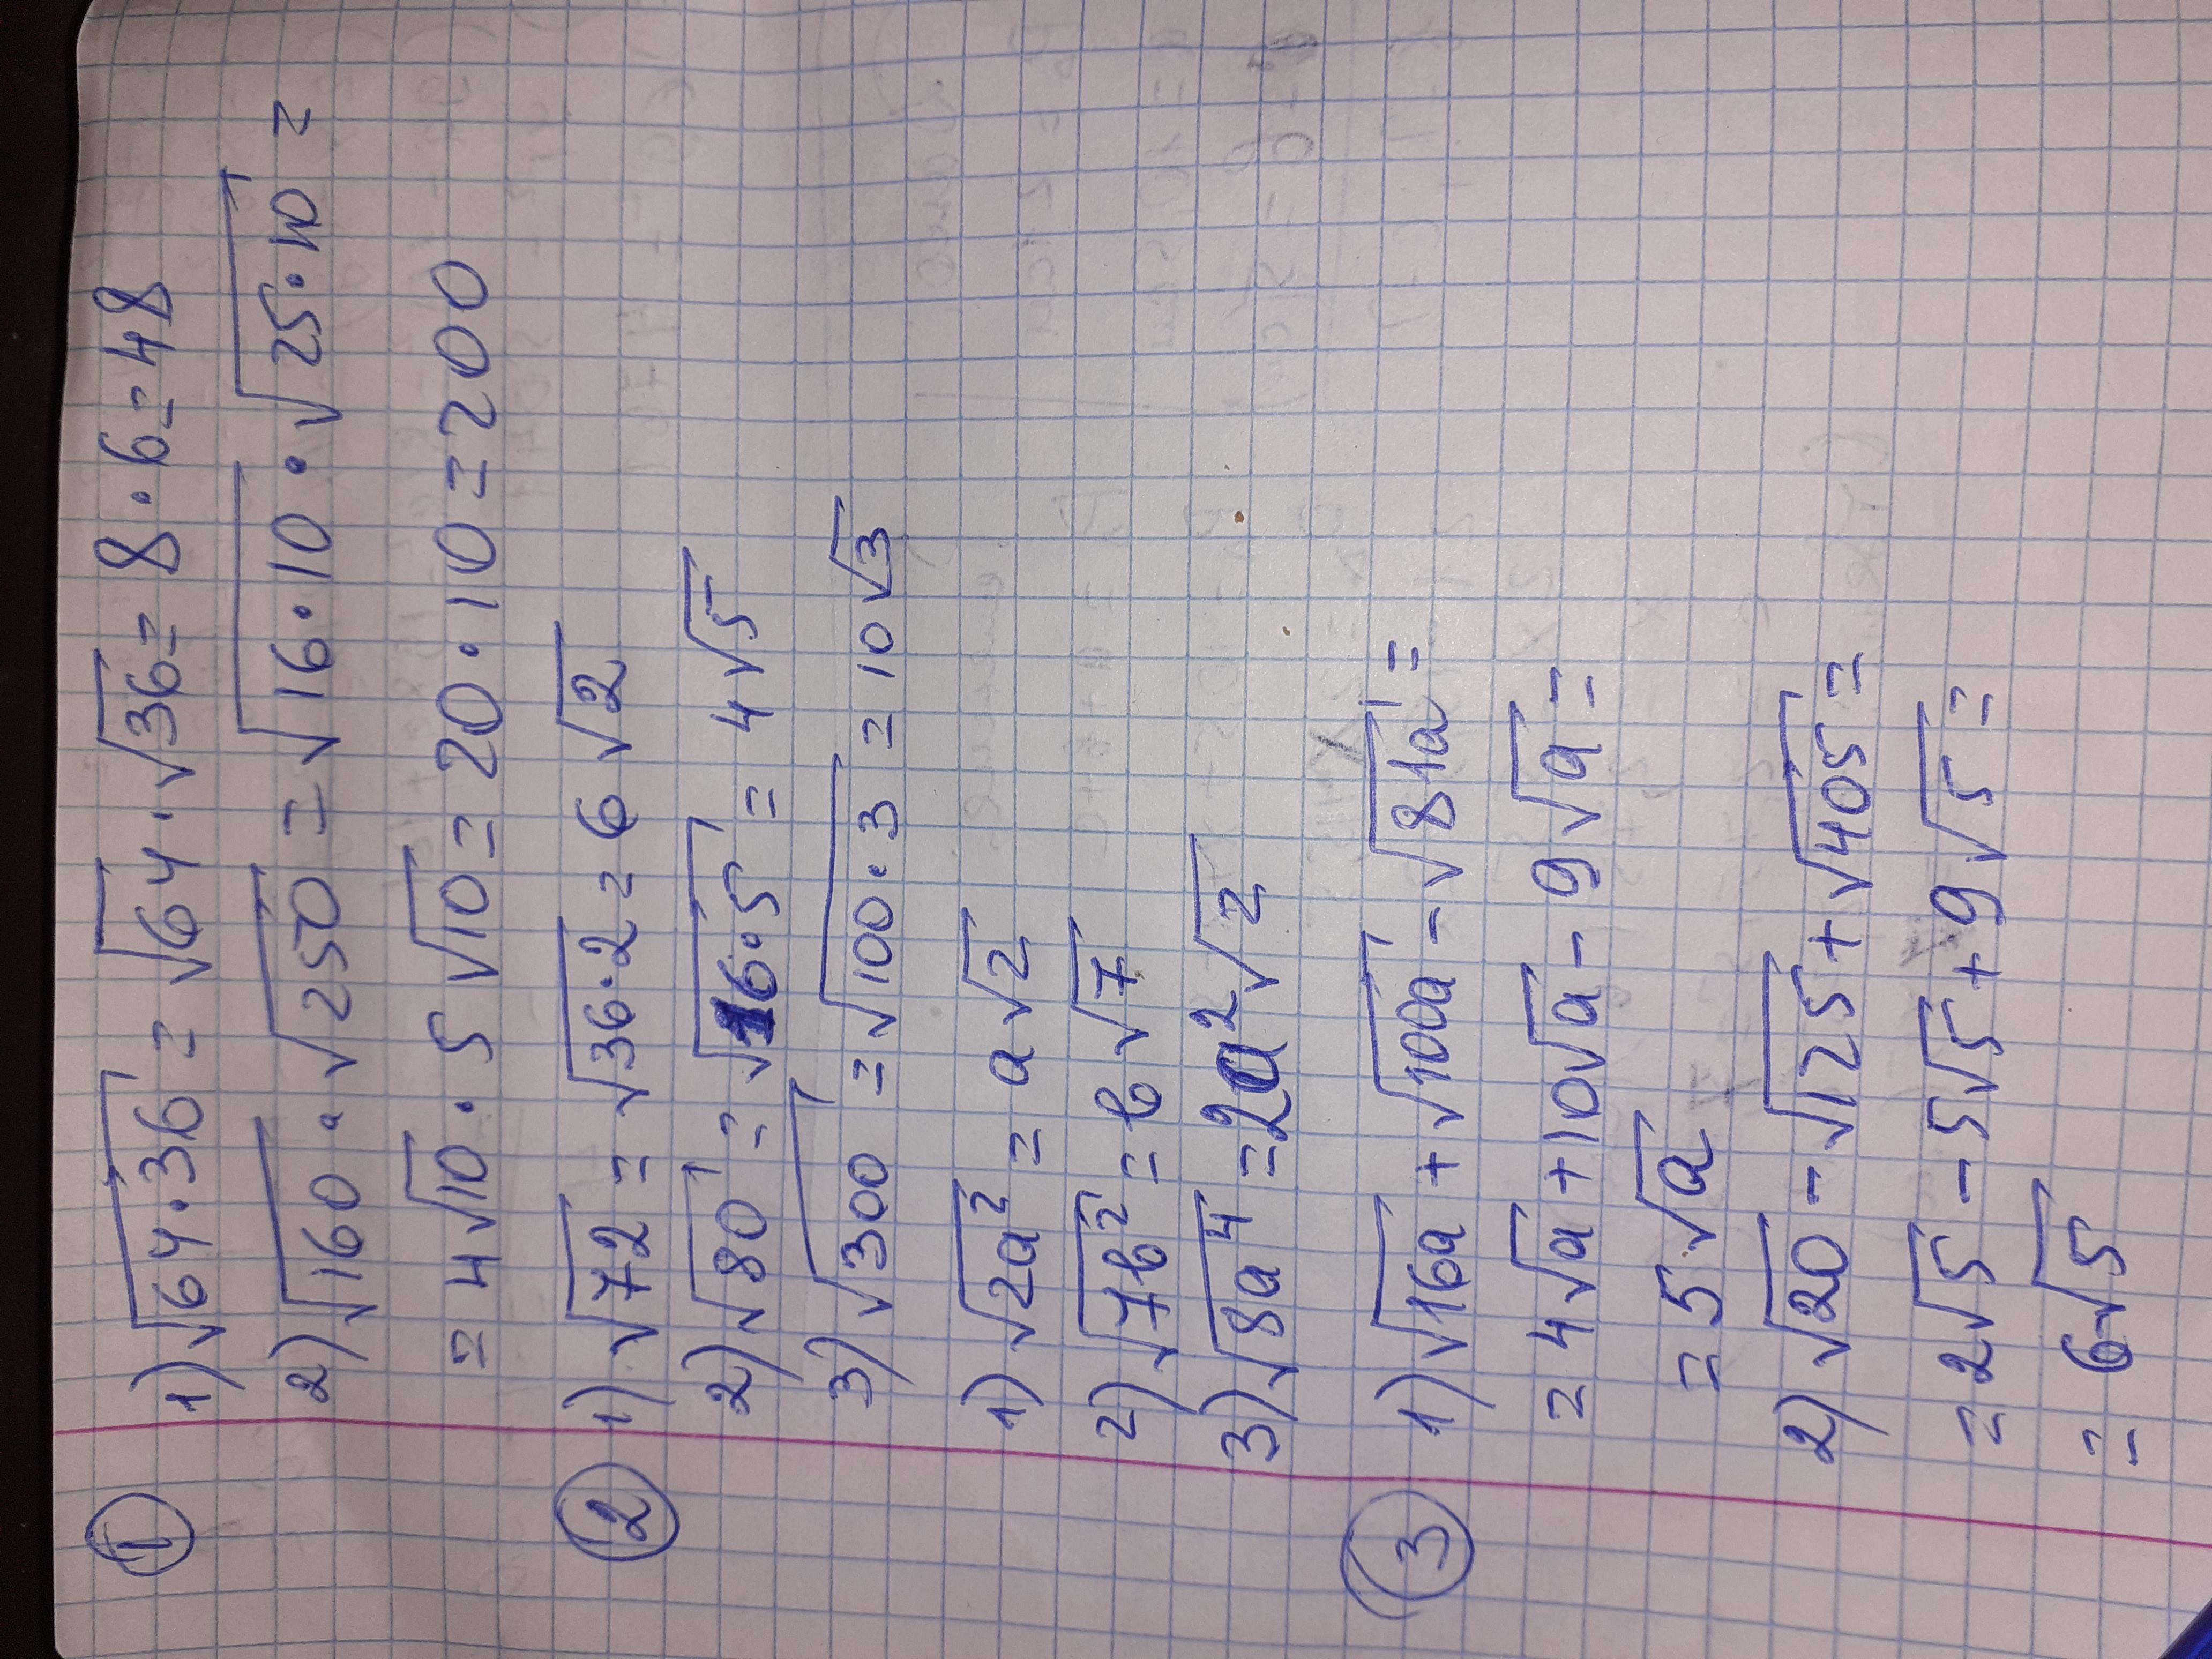 ① 1) √64·36 = √64 · √36 = 8 · 6 = 48
2) √160 · √250 = √16·10 · √25·10 =
= 4√10 · 5√10 = 20 · 10 = 200
② 1) √72 = √36·2 = 6√2
2) √80 = √16·5 = 4√5
3) √300 = √100·3 = 10√3
1) √2a² = a√2
2) √7b² = b√7
3) √8a⁴ = 2a²√2
③ 1) √16a + √100a - √81a =
= 4√a + 10√a - 9√a =
= 5√a
2) √20 - √125 + √405 =
= 2√5 - 5√5 + 9√5 =
= 6√5